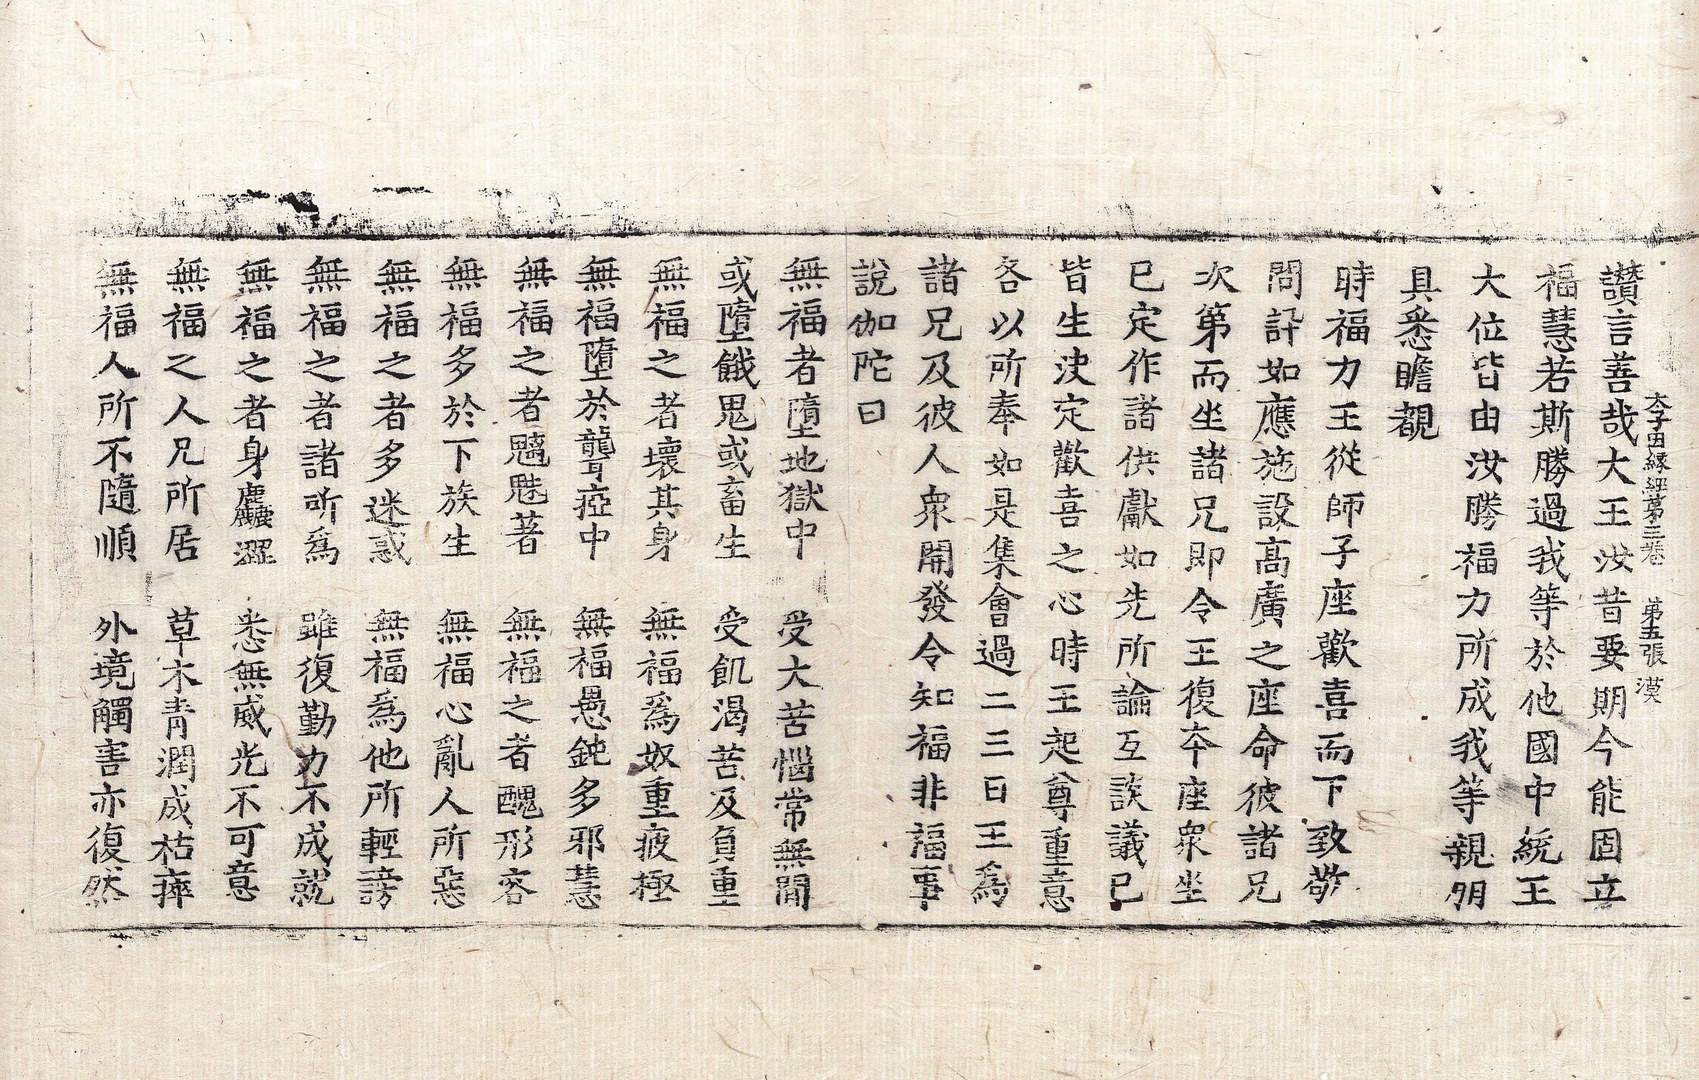 太子因縁經第三卷　第五張　漠
讃言善哉大王汝昔要期今能固立
福慧若斯勝過我等於他國中統王
大位皆由汝勝福力所成我等親朋
具悉瞻覩
時福力王從師子座歡喜而下致敬
問訊如應施設髙廣之座命彼諸兄
次第而坐諸兄即令王復夲座衆坐
已定作諸供獻如先所論互談議已
皆生決定歡喜之心時王起尊重意
各以所奉如是集會過二三日王爲
諸兄及彼人衆開發令知福非福事
說伽陀曰
無福者墮地獄中　受大苦惱常無閒
或墮餓鬼或畜生　受飢渴苦及負重
無福之者壞其身　無福爲奴重疲極
無福墮於聾瘂中　無福愚鈍多邪慧
無福之者魑魅著　無福之者醜形容
無福多於下族生　無福心亂人所惡
無福之者多迷惑　無福爲他所輕謗
無福之者諸所爲　雖復勤力不成就
無福之者身麤澀　悉無威光不可意
無福之人兄所居　草木青潤成枯瘁
無福人所不隨順　外境觸害亦復然